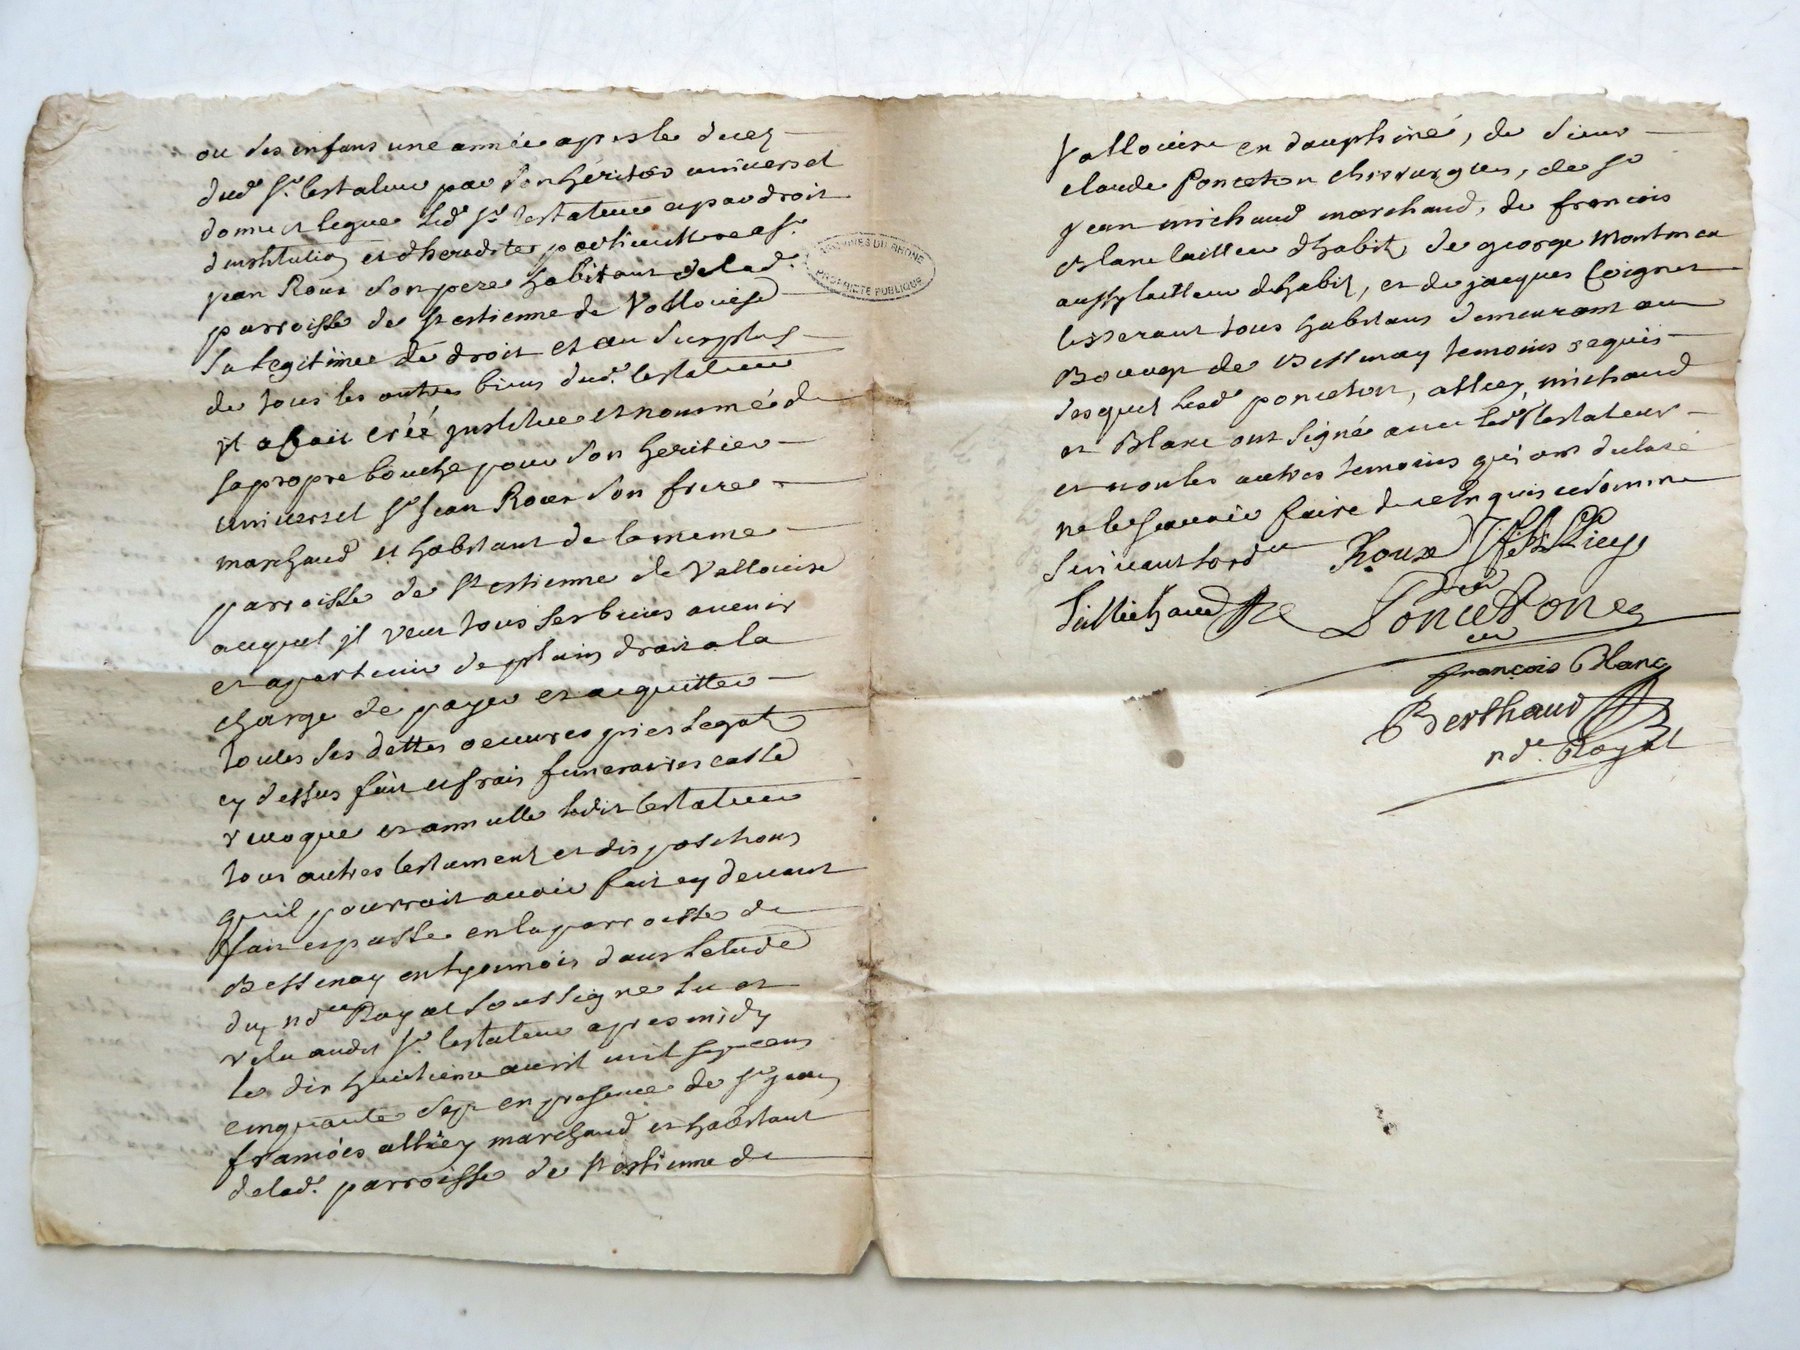 ou des enfans une année apres le decez
dud. Sr. testateur par son héritier universel
donne et legue led. Sr. testateur et par droit
d'institution et d'heredité particulliere a Sr.
jean Roux son pere habitant de lad.
parroisse de St estienne de Vallouise
sa legitime de droit et au surplus
de tous les autres biens dud. testateur
jl a fait créé jnstitue et nousmé de
sa propre bouche pour son heritier
universel Sr jean Roux son frere
marchand et habitant de la meme
parroisse de St estienne de Vallouise
auquel jl veut tous ses biens avenir
et apartenir de plain droit a la
charge de payer et acquitter
toutes ses dettes oeuvres pies legat
cy dessus fait et frais funeraires casse
revoque et annulle ledit testateur
tous autres testament et dispositions
qu'il pourroit avoir fait cy devant
fait et passé en la parroisse de
Bessenay en lyonnois dans letude
du nore Royal soussigné lu et
relu audit Sr. testateur apres midy
le dix huitieme avril mil sept cens
cinquante sept en presence de Sr jean
françois alliey marchand et habitant
de lad. parroisse de St estienne de
ARCHIVES DU RHONE
PROPRIETE PUBLIQUE
Vallouise en dauphiné, de sieur
claude ponceton chirurgien, de Sr
jean michaud marchand, de françois
Blanc tailleur d'habit, de george Montmea
aussy tailleur d'habit, et de jacques Coignet
tisserant tous habitans demeurant au
Bourg de Bessenay temoins requis
desquels lesd. ponceton, alliey, michaud
et Blanc ont signé avec led. Sr testateur
et non les autres temoins qui ont declaré
ne le scavoir faire de ce enquis et sommé
suivant lord.ce Roux
Ponceton
françois Blanc
Berthaud
nore. Royal